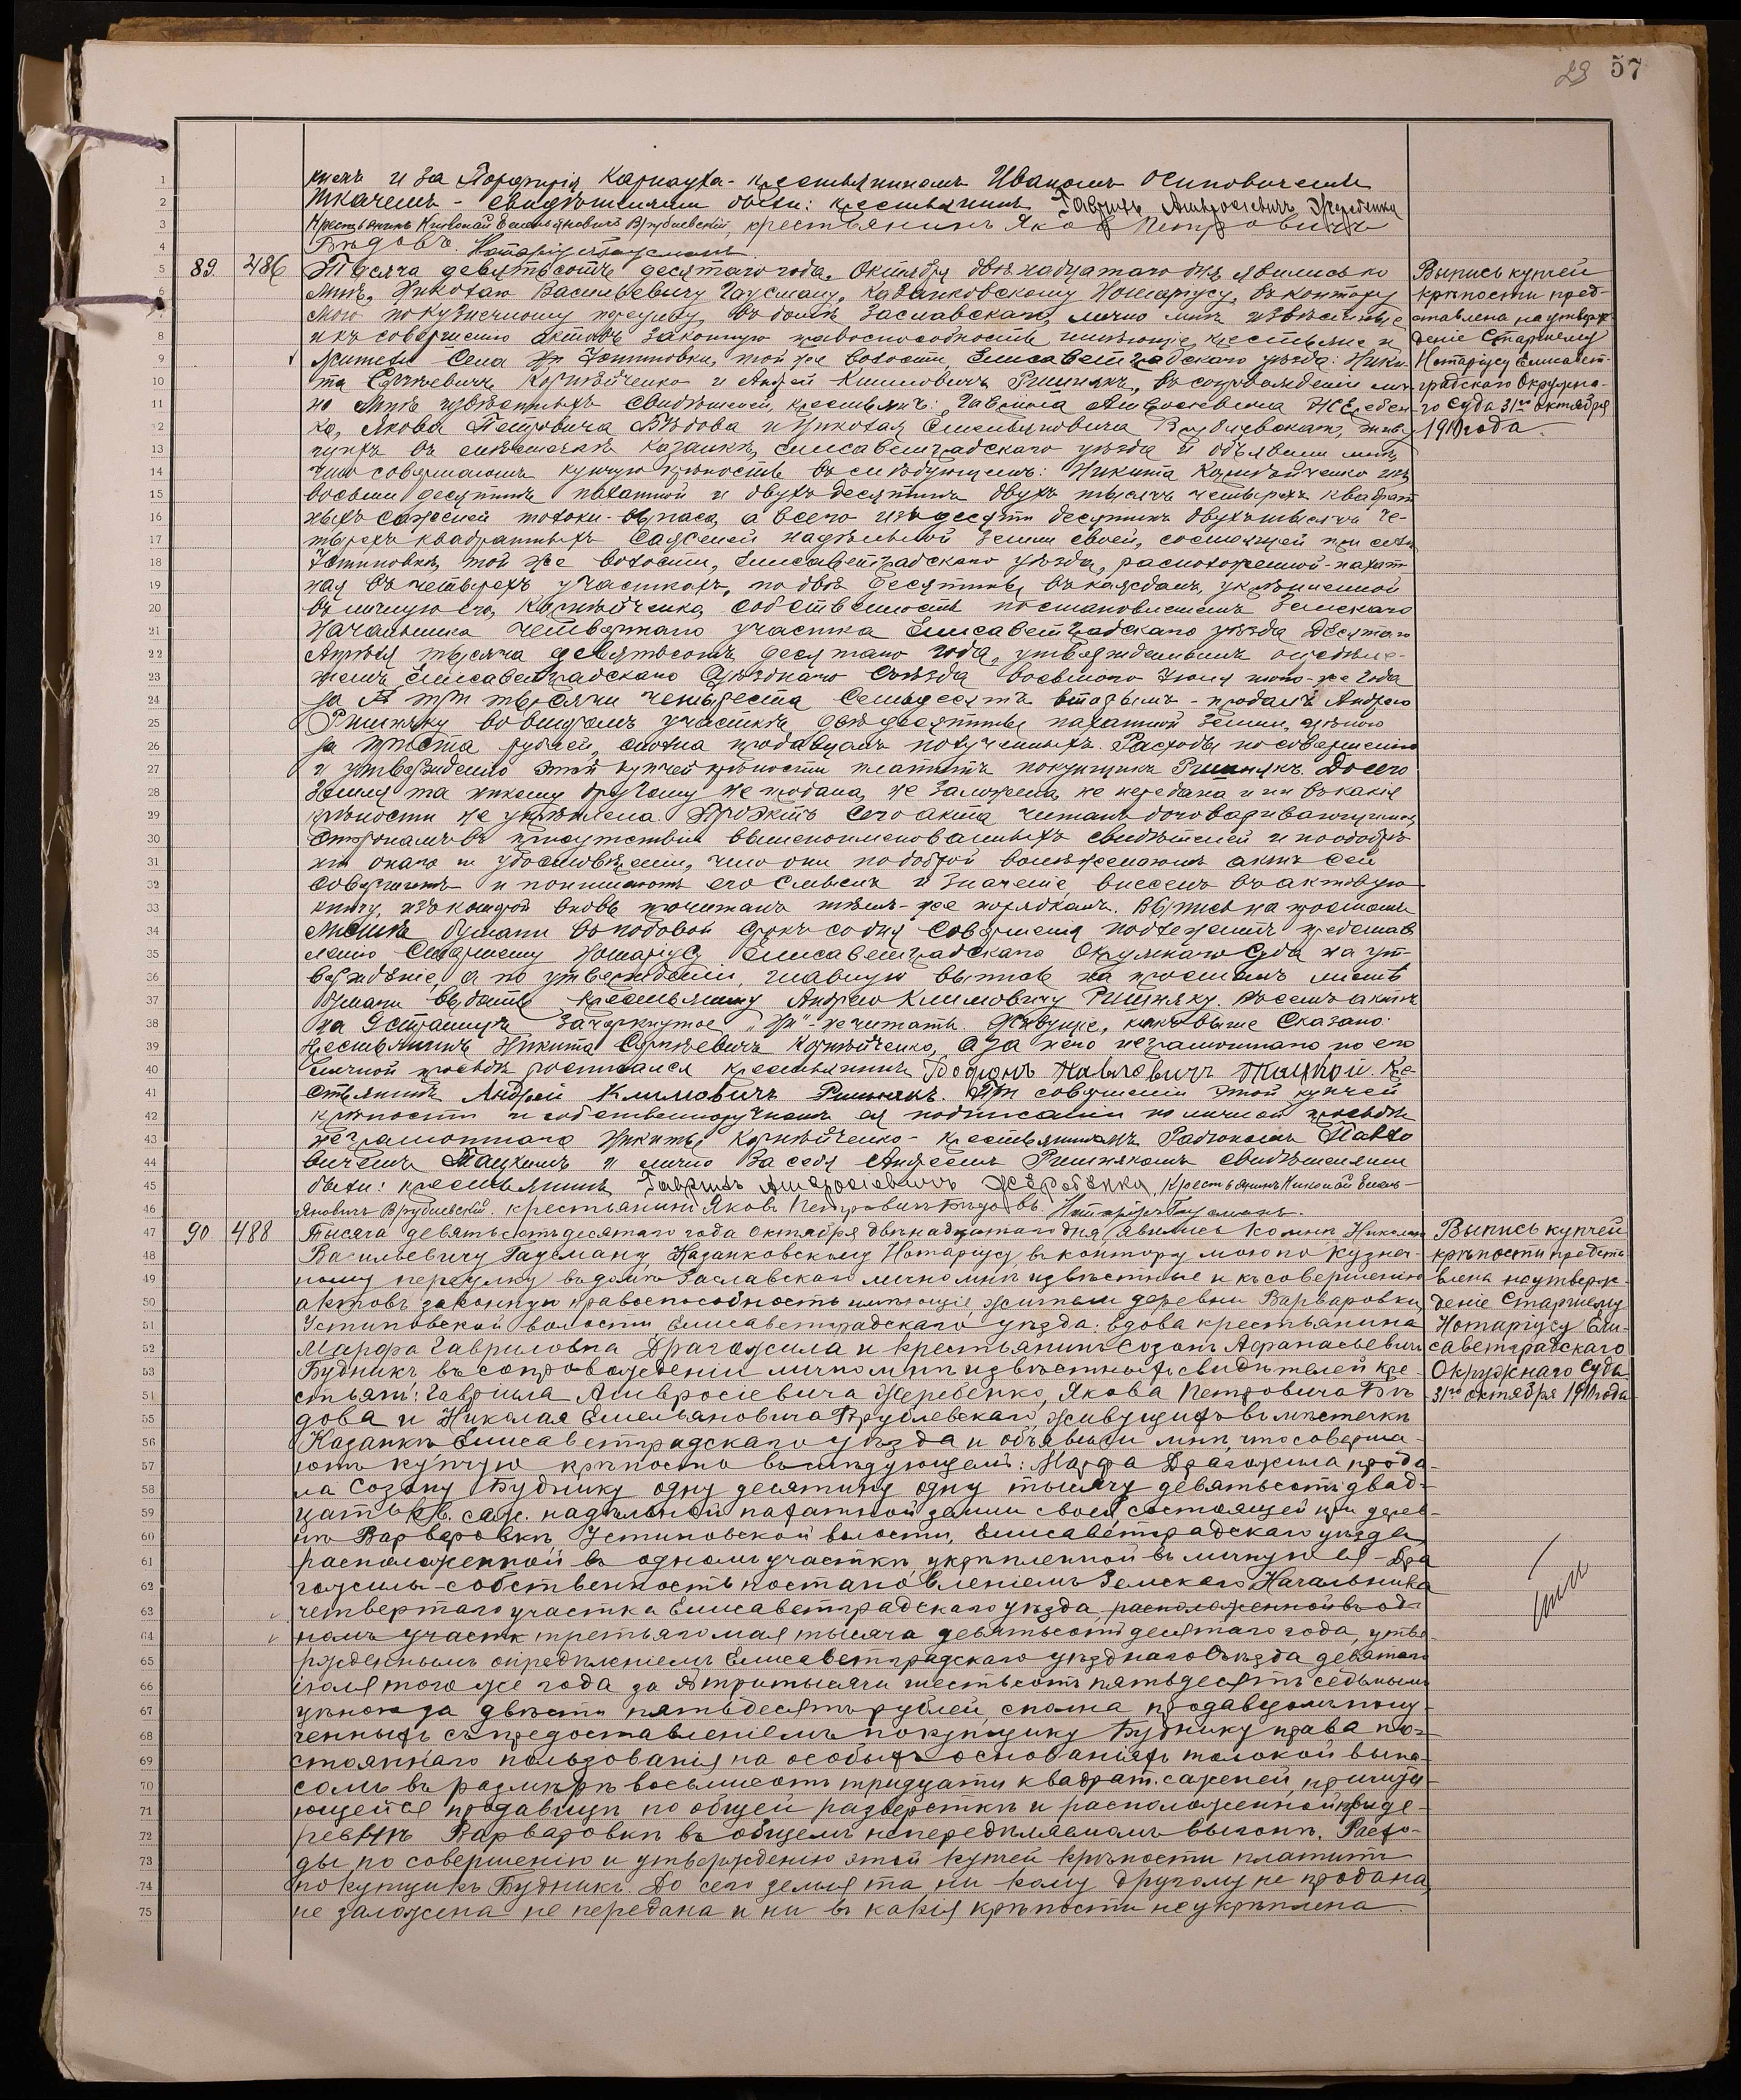 23 57
и за Порфирія Карнауха - крестьяниномъ Иваномъ Осиповичемъ
Ткачемъ - свидѣтелями были: крестьянинъ Гавріилъ Амвросіевичъ Жеребенко
Крестьянинъ Николай Емельяновичъ Врублевскій, крестьянинъ Яковъ Петровичъ
Бѣдовъ. Нотаріусъ Гаусманъ.
89. 486 Тысяча девятьсотъ десятаго года, Октября двѣнадцатаго дня явились ко
мнѣ, Николаю Васильевичу Гаусману, Казанковскому Нотаріусу, въ контору
мою по кузнечному переулку, въ домѣ Заславскаго, лично мнѣ извѣстные
и къ совершенію актовъ законную правоспособность имѣющіе, крестьяне и
жители села при Устиновки, той же волости, Елисаветградскаго уѣзда: Ники-
та Сергѣевичъ Корнѣйченко и Андрей Климовичъ Ришнякъ, въ сопровожденіи лич-
но мнѣ извѣстныхъ свидѣтелей, крестьянъ: Гавріила Амвросіевича Жеребен-
ко, Якова Петровича Бѣдова и Николая Емельяновича Врублевскаго, живу-
щихъ въ мѣстечкѣ Казанкѣ, Елисаветградскаго уѣзда и объявили мнѣ,
что совершаютъ купчую крѣпость въ слѣдующемъ: Никита Корнѣйченко изъ
восьми десятинъ пахатной и двухъ десятинъ двухъ тысячъ четырехъ квадрат-
ныхъ саженей толоки-выпаса, а всего изъ десяти десятинъ двухъ тысячъ че-
тырехъ квадратныхъ саженей надѣльной земли своей, состоящей при селѣ
Устиновкѣ, той же волости, Елисаветградскаго уѣзда, расположенной - пахат-
ная въ четырехъ участкахъ, по двѣ десятины въ каждомъ, укрѣпленной
въ личную его, Корнѣйченка, собственность постановленіемъ Земскаго
Начальника четвертаго участка Елисаветградскаго уѣзда десятаго
Апрѣля тысяча девятьсотъ десятаго года, утвержденнымъ опредѣле-
ніемъ Елисаветградскаго Уѣзднаго Съѣзда восьмого Іюня того-же года
за № три тысячи четыреста семьдесятъ вторымъ - продалъ Андрею
Ришняку во второмъ участкѣ двѣ десятины пахатной земли, цѣною
за триста рублей, сполна продавцомъ полученныхъ. Расходы по совершенію
и утвержденію этой купчей крѣпости платитъ покупщикъ Ришнякъ. До сего
земля та никому другому не продана, не заложена, не передана и ни въ какія
крѣпости не укрѣплена. Проектъ сего акта читанъ договаривающимся
сторонамъ въ присутствіи вышепоименованныхъ свидѣтелей и по одобре-
ніи онаго и удостовѣреніи, что они по доброй волѣ желаютъ актъ сей
совершить и понимаютъ его смыслъ и значеніе, внесенъ въ актовую
книгу, изъ которой вновь прочитанъ тѣмъ-же порядкомъ. Выпись на простомъ
листѣ бумаги въ годовой срокъ со дня совершенія подлежитъ представ-
ленію Старшему Нотаріусу Елисаветградскаго Окружнаго Суда на ут-
вержденіе, а по утвержденіи, главную выпись на простомъ листѣ
бумаги выдать крестьянину Андрею Климовичу Ришняку. Въ семъ актѣ
на 9 страницѣ зачеркнутое "при" - не читать. Живущіе, какъ выше сказано:
крестьянинъ Никита Сергѣевичъ Корнѣйченко, а за него неграмотнаго по его
личной просьбѣ росписался крестьянинъ Родіонъ Павловичъ Тацкій. Кре-
стьянинъ Андрей Климовичъ Ришнякъ. При совершеніи этой купчей
крѣпости и собственноручномъ ея подписаніи по личной просьбѣ
неграмотнаго Никиты Корнѣйченко - крестьяниномъ Родіономъ Павло-
вичемъ Тацкимъ и лично за себя Андреемъ Ришнякомъ свидѣтелями
были: крестьянинъ Гавріилъ Амвросіевичъ Жеребенко, Крестьянинъ Николай Емель-
яновичъ Врублевскій. крестьянинъ Яковъ Петровичъ Бѣдовъ. Нотаріусъ Гаусманъ.
Выпись купчей
крѣпости пред-
ставлена на утверж-
деніе Старшему
Нотаріусу Елисавет-
градскаго Окружна-
го Суда 31го октября
1910 года
90 488 Тысяча девятьсотъ десятаго года Октября двѣнадцатаго дня явились ко мнѣ, Николаю
Васильевичу Гаусману, Казанковскому Нотаріусу, въ контору мою по Кузнеч-
ному переулку въ домѣ Заславскаго лично мнѣ извѣстные и къ совершенію
актовъ законную правоспособность имѣющіе, жители деревни Варваровки,
Устиновской волости Елисаветградскаго уѣзда: вдова крестьянина
Марфа Гавриловна Драгожила и крестьянинъ Созонъ Афанасьевичъ
Будникъ въ сопровожденіи лично мнѣ извѣстныхъ свидѣтелей кре-
стьянъ: Гавріила Амвросіевича Жеребенко, Якова Петровича Бѣ-
дова и Николая Емельяновича Врублевскаго, живущихъ въ мѣстечкѣ
Казанкѣ Елисаветградскаго уѣзда и объявили мнѣ, что соверша-
ютъ купчую крѣпость въ слѣдующемъ: Марфа Драгожила прода-
ла Созону Буднику одну десятину одну тысячу девятьсотъ двад-
цать кв. саж. надѣльной пахатной земли своей, состоящей при дерев-
нѣ Варваровкѣ, Устиновской волости, Елисаветградскаго уѣзда
расположенной въ одномъ участкѣ, укрѣпленной въ личную ея - Дра-
гожилы - собственность постановленіемъ Земскаго Начальника
четвертаго участка Елисаветградскаго уѣзда, расположенной въ од-
номъ участк третьяго мая тысяча девятьсотъ десятаго года, утве-
ржденнымъ опредѣленіемъ Елисаветградскаго уѣзднаго Съѣзда девятаго
іюля того же года за № три тысячи шестьсотъ пятьдесятъ седьмымъ
цѣною за двѣсти пятьдесятъ рублей, сполна продавцомъ полу-
ченныхъ съ предоставленіемъ покупщику Буднику права по-
стояннаго пользованія на особыхъ основаніяхъ толокой выпа-
сомъ въ размѣрѣ восьмисотъ тридцати квадрат. саженей, причита-
ющейся продавицѣ по общей разверсткѣ и расположенной при де-
ревнѣ Варваровкѣ въ общемъ непередѣляемомъ выгонѣ. Расхо-
ды по совершенію и утвержденію этой купчей крѣпости платитъ
покупщикъ Будникъ. До сего земля та ни кому другому не продана,
не заложена не передана и ни въ какія крѣпости не укрѣплена.
Выпись купчей
крѣпости предста-
влена на утверж-
деніе Старшему
Нотаріусу Ели-
саветградскаго
Окружнаго Суда
31го октября 1910 года
1
2
3
4
5
6
7
8
9
10
11
12
13
14
15
16
17
18
19
20
21
22
23
24
25
26
27
28
29
30
31
32
33
34
35
36
37
38
39
40
41
42
43
44
45
46
47
48
49
50
51
52
53
54
55
56
57
58
59
60
61
62
63
64
65
66
67
68
69
70
71
72
73
74
75